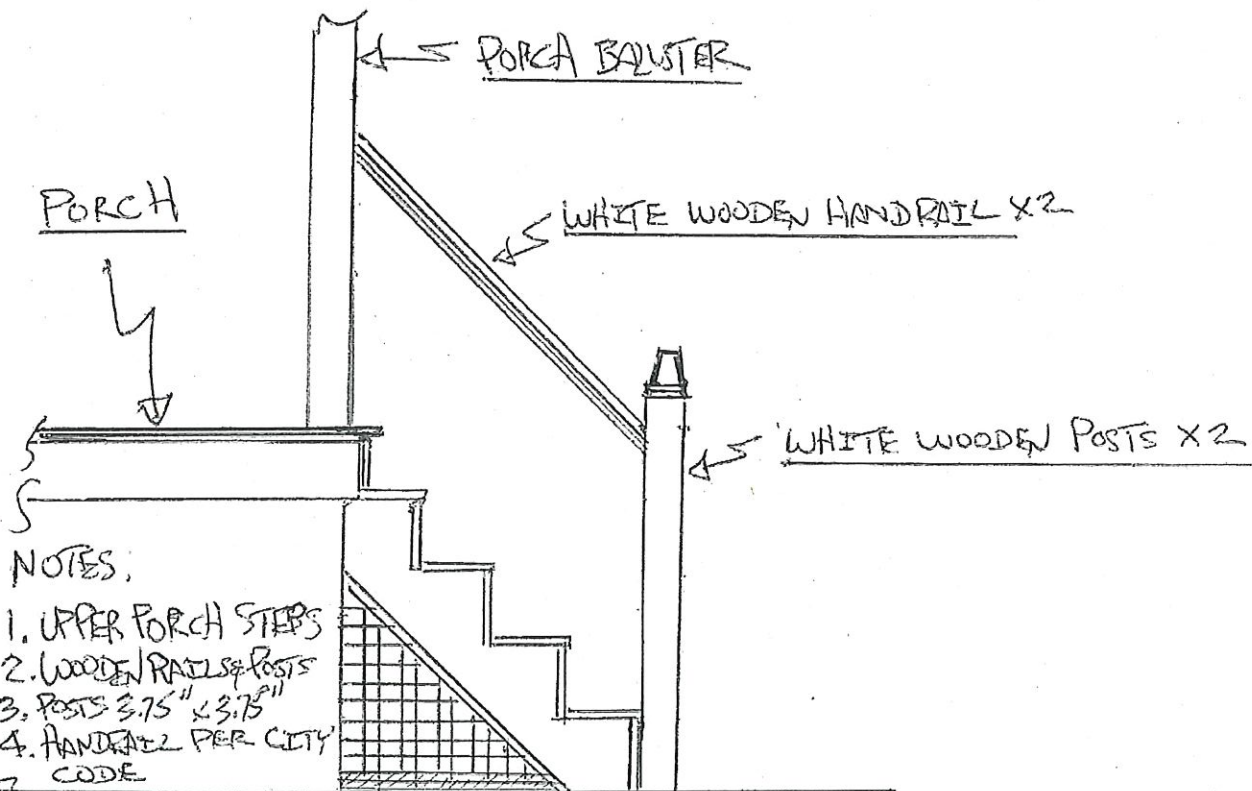 PORCH BALUSTER
PORCH
WHITE WOODEN HANDRAIL X2
WHITE WOODEN POSTS X2
NOTES:
1. UPPER PORCH STEPS
2. WOODEN RAILS & POSTS
3. POSTS 3.75" x 3.75"
4. HANDRAIL PER CITY
CODE